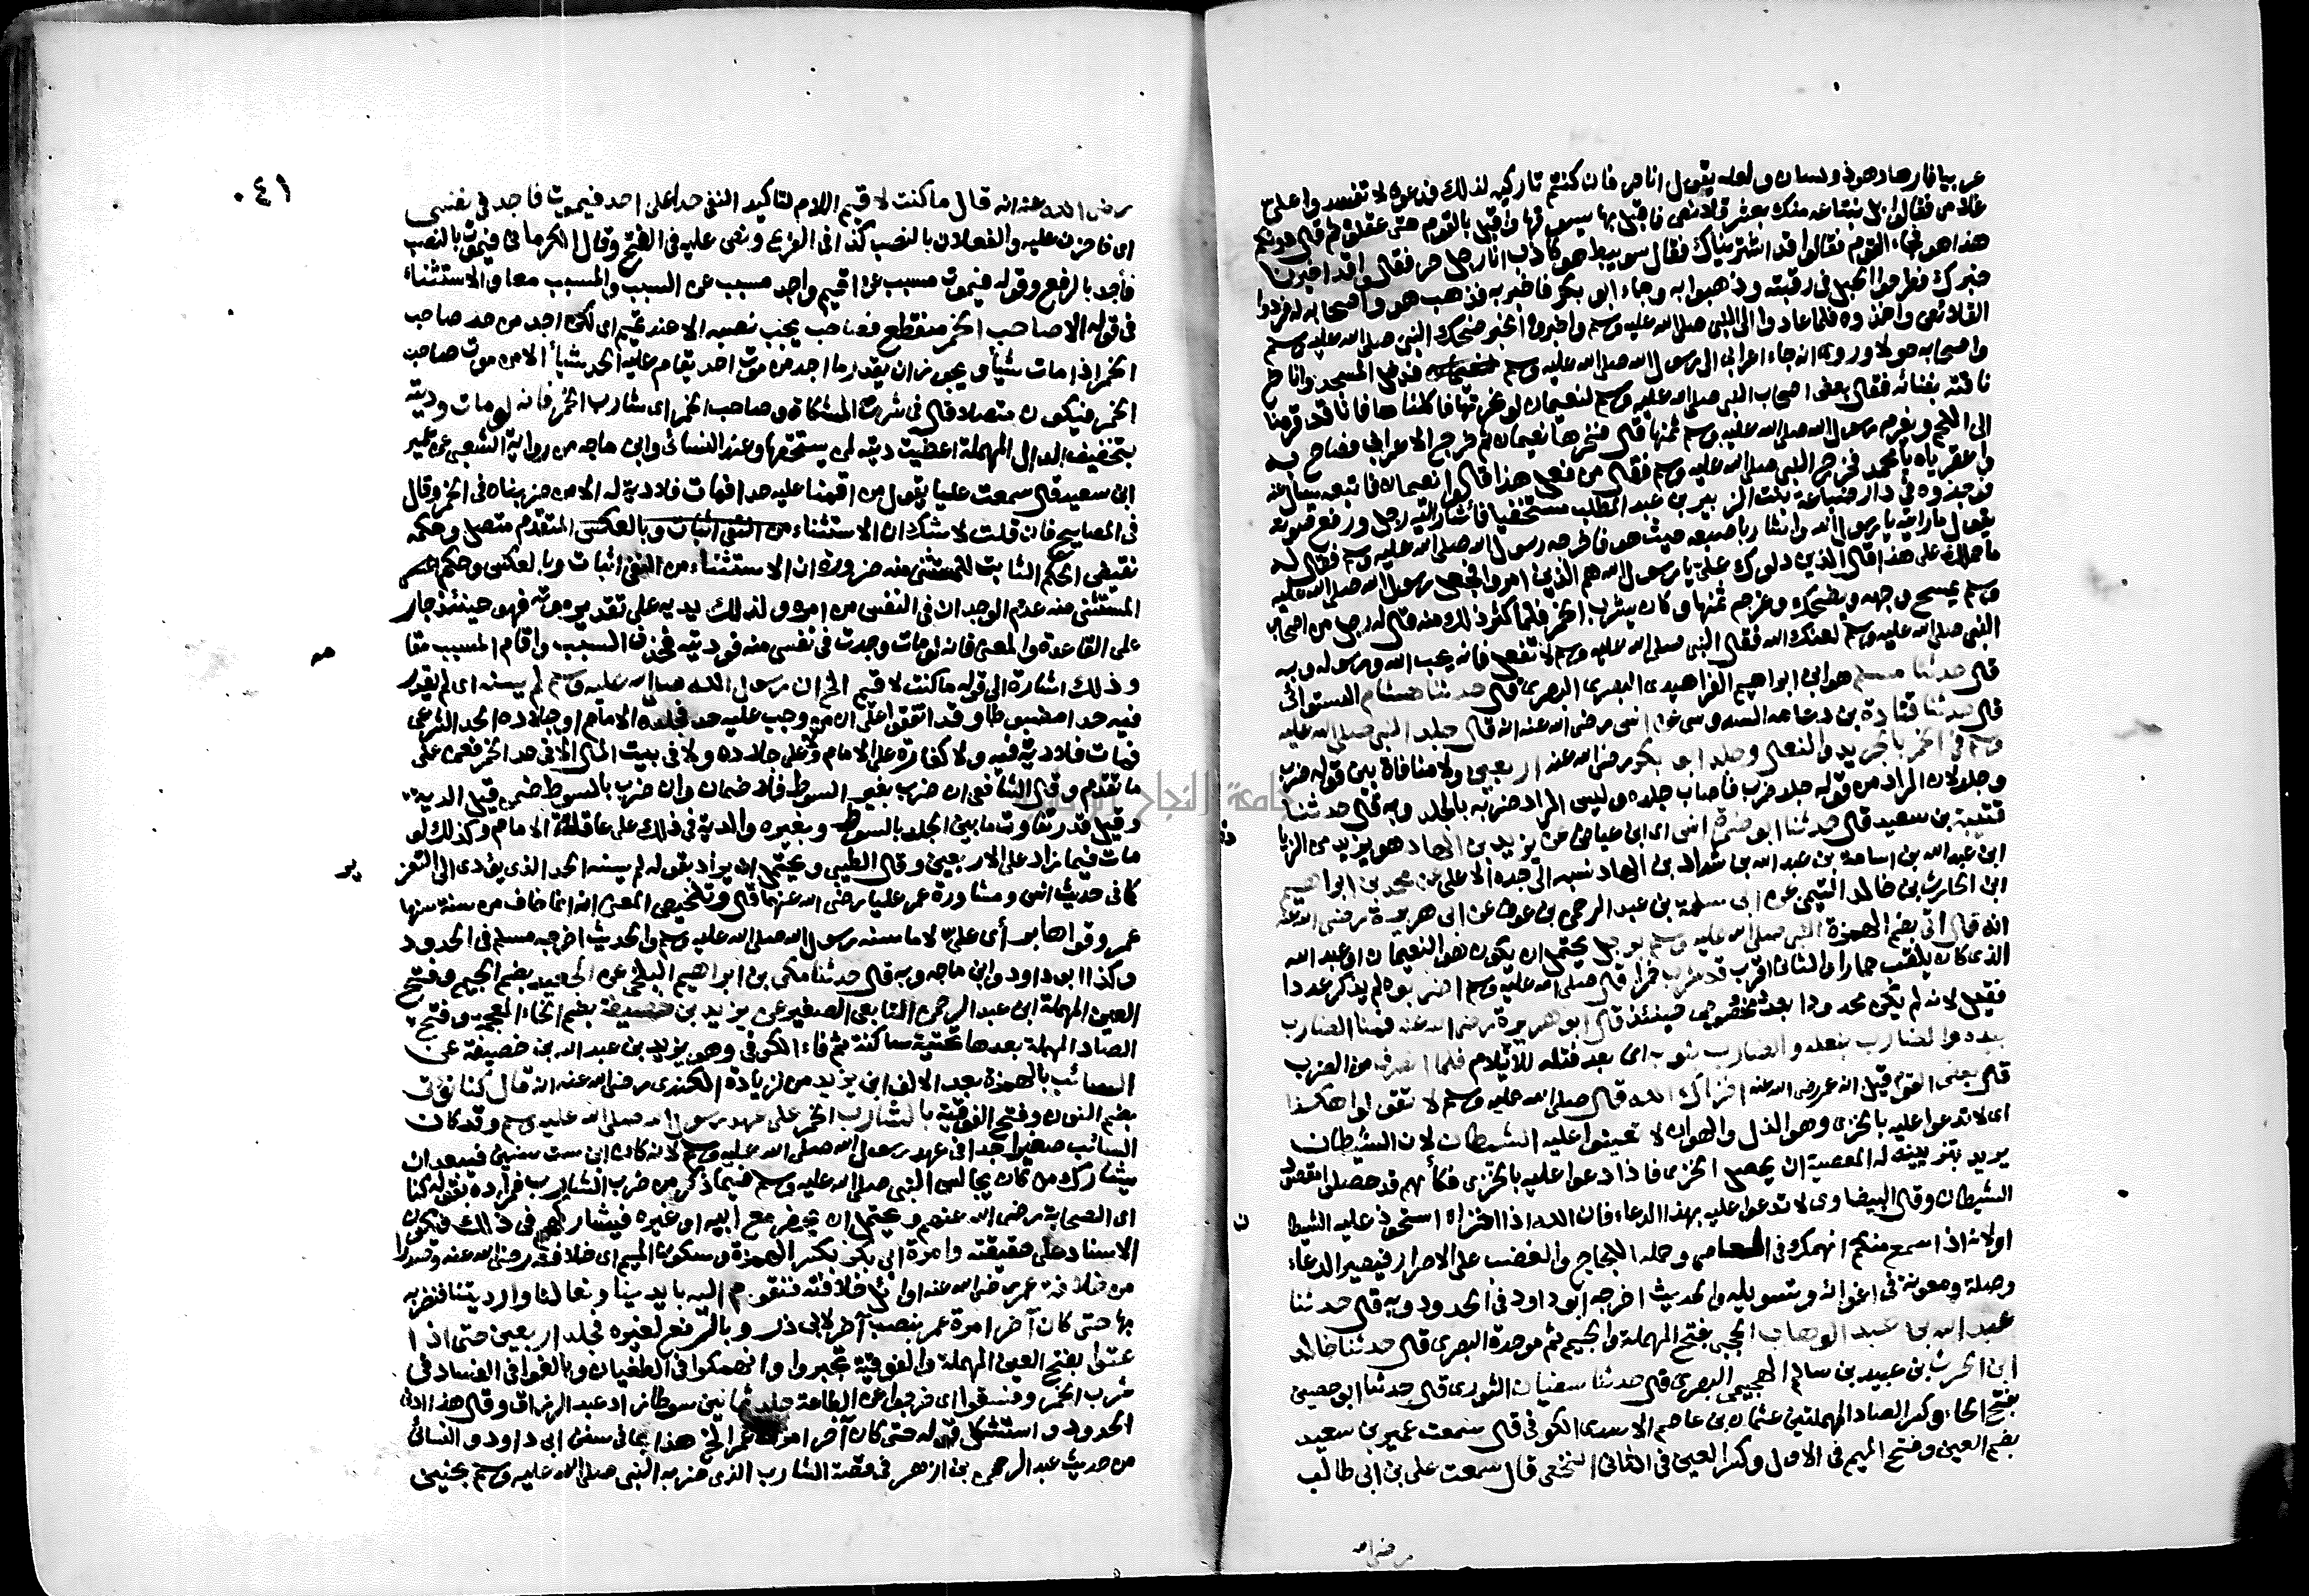 عربيا فارها دهو ذو لسان ولعله يقول انا حر فان كنتم تاركيه لذلك فدعوه لا تفسدوا على
غلامي فقالوا بل نبتاعه منك بعشر قلائص فاقبل بها يسوقها واقبل بالقوم حتى عقلوها ثم قال دونكم
هذا هو فجاء القوم فقالوا قد اشتريناك فقال سويبط هو كاذب انا رجل حر فقالوا قد اخبرنا
خبرك فطرحوا الحبل في رقبته وذهبوا به وجاء ابو بكر فاخبر به فذهب هو واصحابه له فردوا
القلائص واخذوه فلما عادوا الى النبي صلى الله عليه وسلم واخبروه الخبر ضحك النبي صلى الله عليه وسلم
واصحابه حولا وروى انه جاء اعرابي الى رسول الله صلى الله عليه وسلم فدخل المسجد واناخ
ناقته بفنائه فقال بعض اصحاب النبي صلى الله عليه وسلم لنعيمان لو نحرتها فاكلناها فانا قد قرمنا
الى اللحم ويغرم رسول الله صلى الله عليه وسلم ثمنها قال فنحرها نعيمان ثم خرج الاعرابي فصاح به
واعقراه يا محمد فخرج النبي صلى الله عليه وسلم فقال من فعل هذا قالوا نعيمان فاتبعه يسال عنه
فوجدوه في دار ضباعة بنت الزبير بن عبد المطلب مستخفيا فأشار اليه رجل ورفع صوته
يقول ما رايته يا رسول الله واشار باصبعه حيث هو فاخرجه رسول الله صلى الله عليه وسلم فقال له
ما حملك على هذا قال الذين دلوك علي يا رسول الله هم الذين امروا فجعل رسول الله صلى الله عليه
وسلم يمسح وجهه ويضحك وغرم ثمنها وكان يشرب الخمر فلما كثر ذلك منه قال له رجل من اصحاب
النبي صلى الله عليه وسلم لعنك الله فقال النبي صلى الله عليه وسلم لا تفعل فانه يحب الله ورسوله وبه
قال حدثنا مسلم هو ابن ابراهيم الفراهيدي البصري قال حدثنا هشام الدستوائي
قال حدثنا قتادة بن دعامة السدوسي عن انس رضي الله عنه انه قال جلد النبي صلى الله عليه
وسلم في الخمر بالجريد والنعال وجلد ابو بكر رضي الله عنه اربعين ولا منافاة بين قوله ضرب
وجلد لان المراد من قوله جلد ضرب فاصاب جلده وليس المراد ضربه بالجلد وبه قال حدثنا
قتيبة بن سعيد قال حدثنا ابو ضمرة انس اي ابن عياض عن يزيد بن الهاد هو يزيد من الزيا
ابن عبد الله بن اسامة بن عبد الله بن شداد بن الهاد نسبه الى جده الاعلى عن محمد بن ابراهيم
ابن الحارث بن خالد التيمي عن ابي سلمة بن عبد الرحمن بن عوف عن ابي هريرة رضي الله عنه
انه قال اتي بضم الهمزة النبي صلى الله عليه وسلم برجل يحتمل ان يكون هو النعيمان او عبد الله
الذي كان يلقب حمارا والثاني اقرب قد شرب خمرا قال صلى الله عليه وسلم اضربوه لم يذكر عددا
فقيل لانه لم يكن محدودا بعدد مخصوص حينئذ قال ابو هريرة رضي الله عنه فمنا الضارب
بيده والضارب بنعله والضارب بثوبه اي بعد فتله للايلام فلما انصرف من الضرب
قال بعض القوم قيل انه عمر رضي الله عنه اخزاك الله قال صلى الله عليه وسلم لا تقولوا هكذا
اي لا تدعوا عليه بالخزي وهو الذل والهوان لا تعينوا عليه الشيطان لان الشيطان
يريد بتزيينه له المعصية ان يحصل الخزي فاذا دعوا عليه بالخزي فكأنهم قد حصلوا مقصود
الشيطان وقال البيضاوي لا تدعوا عليه بهذا الدعاء فان الله اذا اخزاه استحوذ عليه الشيطا
او لانه اذا سمع منكم انهمك في المعاصي وحمله اللجاج والغضب على الاصرار فيصير الدعاء
وصلة ومعونة في اغوائه وتسويله والحديث اخرجه ابو داود في الحدود وبه قال حدثنا
عبد الله بن عبد الوهاب الحجبي بفتح المهملة والجيم ثم موحدة البصري قال حدثنا خالد
ابن الحرث بن عبيد بن سالم الهجيمي البصري قال حدثنا سفيان الثوري قال حدثنا ابو حصين
بفتح الحاء وكسر الصاد المهملتين عثمان بن عاصم الاسدي الكوفي قال سمعت عمير بن سعيد
بضم العين وفتح الميم في الاول وكسر العين في الثاني النخعي قال سمعت علي بن ابي طالب
رضي الله
٠٤١
رضي الله عنه انه قال ما كنت لاقيم اللام لتاكيد النفي حدا على احد فيموت فاجد في نفسي
اي فاحزن عليه والفعلان بالنصب كذا في الفرع ونص عليه في الفتح وقال الكرماني فيموت بالنصب
فأجد بالرفع وقوله فيموت مسبب عن اقيم واجد مسبب عن السبب والمسبب معا والاستثناء
في قوله الا صاحب الخمر منقطع فصاحب يجب نصبه الا عند تميم اي لكن اجد من حد صاحب
الخمر اذا مات شيأ ويجوز ان يقدر ما اجد من موت احد يقام عليه الحد شيأ الا من موت صاحب
الخمر فيكون متصلا قال في شرح المشكاة وصاحب الخمر اي شارب الخمر فانه لو مات وديته
بتخفيف الدال المهملة اعطيت ديته لمن يستحقها وعند النسائي وابن ماجه من رواية الشعبي عن عمير
ابن سعيد قال سمعت عليا يقول من اقمنا عليه حدا فمات فلا دية له الا من ضربناه في الخمر وقال
في المصابيح فان قلت لا شك ان الاستثناء من النفي اثبات وبالعكس المتقدم متصل وحكمه
نقيض الحكم الثابت للمستثنى منه ضرورة ان الاستثناء من النفي اثبات وبالعكس وحكم
المستثنى منه عدم الوجدان في النفس من امره ولذلك يديه على تقدير موته فهو حينئذ جار
على القاعدة والمعنى فانه لو مات وجدت في نفسي منه فوديته فحذف السبب واقام المسبب مقا
وذلك اشارة الى قوله ما كنت لاقيم الخ ان رسول الله صلى الله عليه وسلم لم يسنه اي لم يقدر
فيه حدا مضبوطا وقد اتفقوا على ان من وجب عليه حد فجلده الامام او جلاده الحد الشرعي
فمات فلا دية فيه ولا كفارة على الامام ولا على جلاده ولا في بيت المال الا في حد الخمر فعن علي
ما تقدم وقال الشافعي ان ضرب بغير السوط فلا ضمان وان ضرب بالسوط ضمن قيل الدية
وقيل قدر تفاوت ما بين الجلد بالسوط وبغيره والدية في ذلك على عاقلة الامام وكذلك لو
مات فيما زاد على الاربعين وقال الطيبي ويحتمل ان يراد بقوله لم يسنه الحد الذي يؤدى الى التعزير
كما في حديث انس ومشاورة عمر عليا رضي الله عنهما قال وتلخيص المعنى انه انما خاف من سنة سنها
عمر وقواها برأي علي لا ما سنه رسول الله صلى الله عليه وسلم والحديث اخرجه مسلم في الحدود
وكذا ابو داود وابن ماجه وبه قال حدثنا مكي بن ابراهيم البلخي عن الجعيد بضم الجيم وفتح
العين المهملة ابن عبد الرحمن التابعي الصغير عن يزيد بن خصيفة بضم الخاء المعجمة وفتح
الصاد المهملة بعدها تحتية ساكنة ثم فاء الكوفي وهو يزيد بن عبد الله بن خصيفة عن
السائب بالهمزة بعد الالف ابن يزيد من الزيادة الكندي رضي الله عنه انه قال كنا نؤتى
بضم النون وفتح الفوقية بالشارب الخمر على عهد رسول الله صلى الله عليه وسلم وقد كان
السائب صغيرا جدا في عهد رسول الله صلى الله عليه وسلم لانه كان ابن ست سنين فيبعد ان
يشارك من كان يجالس النبي صلى الله عليه وسلم فيما ذكر من ضرب الشارب فمراده بقوله كنا
اي الصحابة رضي الله عنهم ويحتمل ان يحضر مع ابيه او غيره فيشاركهم في ذلك فيكون
الاسناد على حقيقته وامرة ابي بكر بكسر الهمزة وسكون الميم اي خلافته رضي الله عنه وصدرا
من خلافة عمر رضي الله عنه اوائل خلافته فنقوم اليه بايدينا ونعالنا وارديتنا فنضربه
بها حتى كان آخر امرة عمر بنصب آخر لابي ذر وبالرفع لغيره فجلد اربعين حتى اذا
عتوا بفتح العين المهملة والفوقية تجبروا وانهمكوا في الطغيان وبالغوا في الفساد في
شرب الخمر وفسقوا اي خرجوا عن الطاعة جلد ثمانين سوطا زاد عبد الرزاق وقال هذا ادنى
الحدود واستشكل قوله حتى كان آخر امرة عمر الخ هذا بما في سنن ابي داود والنسائي
من حديث عبد الرحمن بن ازهر في قصة الشارب الذي ضربه النبي صلى الله عليه وسلم بحنين
جامعة النجاح الوطنية